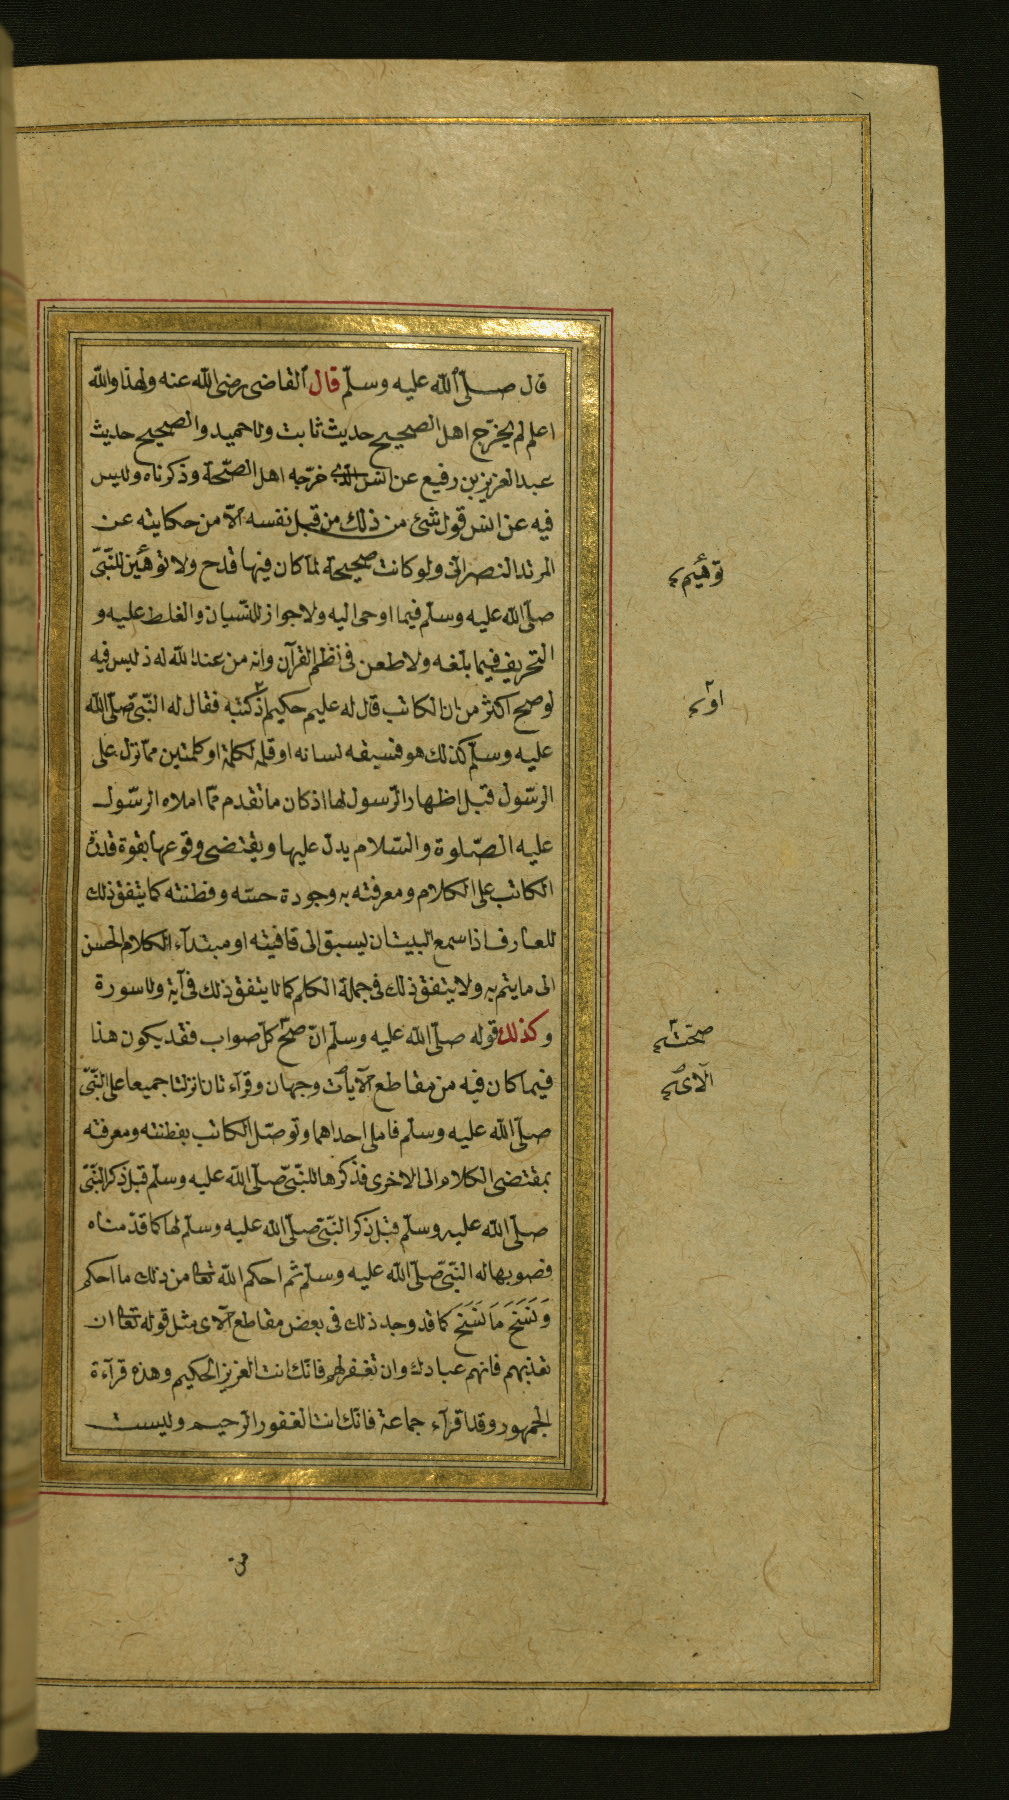 قال صلّى الله عليه وسلّم قال القاضى رضى الله عنه ولهذا والله
اعلم لم يخرّج اهل الصحيح حديث ثابت ولا حميد والصحيح حديث
عبد العزيز بن رفيع عن انس الذى خرّجه اهل الصّحّة وذكرناه وليس
فيه عن انس قول شئ من ذلك من قبل نفسه الّا من حكايته عن
المرتد النصرانى ولو كانت صحيحة لما كان فيها قدح ولا توهين للنّبىّ
توهيم
صلّى الله عليه وسلّم فيما اوحى اليه ولا جواز للنّسيان والغلط عليه و
التحريف فيما بلّغه ولا طعن فى نظم القرآن وانه من عند الله اذ ليس فيه
لو صح اكثر من ان الكاتب قال له عليم حكيم اذ كتبه فقال له النّبىّ صلّى الله
او
عليه وسلّم كذلك هو فسبقه لسانه او قلمه لكلمة او كلمتين ممّا نزل على
الرسول قبل اظهار الرّسول لها اذ كان ما تقدم ممّا املاه الرسول
عليه الصّلوة والسّلام يدل عليها ويقتضى وقوعها بقوة قدرة
الكاتب على الكلام ومعرفته به وجودة حسّه وفطنته كما يتفق ذلك
للعارف اذا سمع البيت ان يسبق الى قافيته او مبتدأء الكلام الحسن
الى ما يتم به ولا يتفق ذلك فى جملة الكلم كما لا يتفق ذلك فى آية ولا سورة
وكذلك قوله صلّى الله عليه وسلّم ان صحّ كلّ صواب فقد يكون هذا
صحت
فيما كان فيه من مقاطع الآيات وجهان وقراءتان انزلتا جميعا على النّبىّ
الآى
صلّى الله عليه وسلّم فاملى احداهما وتوصّل الكاتب بفطنته ومعرفته
بمقتضى الكلام الى الاخرى فذكرها للنّبىّ صلّى الله عليه وسلّم قبل ذكر النّبىّ
صلّى الله عليه وسلّم قبل ذكر النّبىّ صلّى الله عليه وسلّم لها كما قدّمناه
فصوبها له النّبىّ صلّى الله عليه وسلّم ثم احكم الله تعالى من ذلك ما احكم
وَنَسَخَ مَا نَسَخَ كما قد وجد ذلك فى بعض مقاطع الآى مثل قوله تعالى ان
تعذبهم فانهم عبادك وان تغفر لهم فانّك انت العزيز الحكيم وهذه قرآءة
الجمهور وقد قرآء جماعة فانّك انت الغفور الرحيم وليست